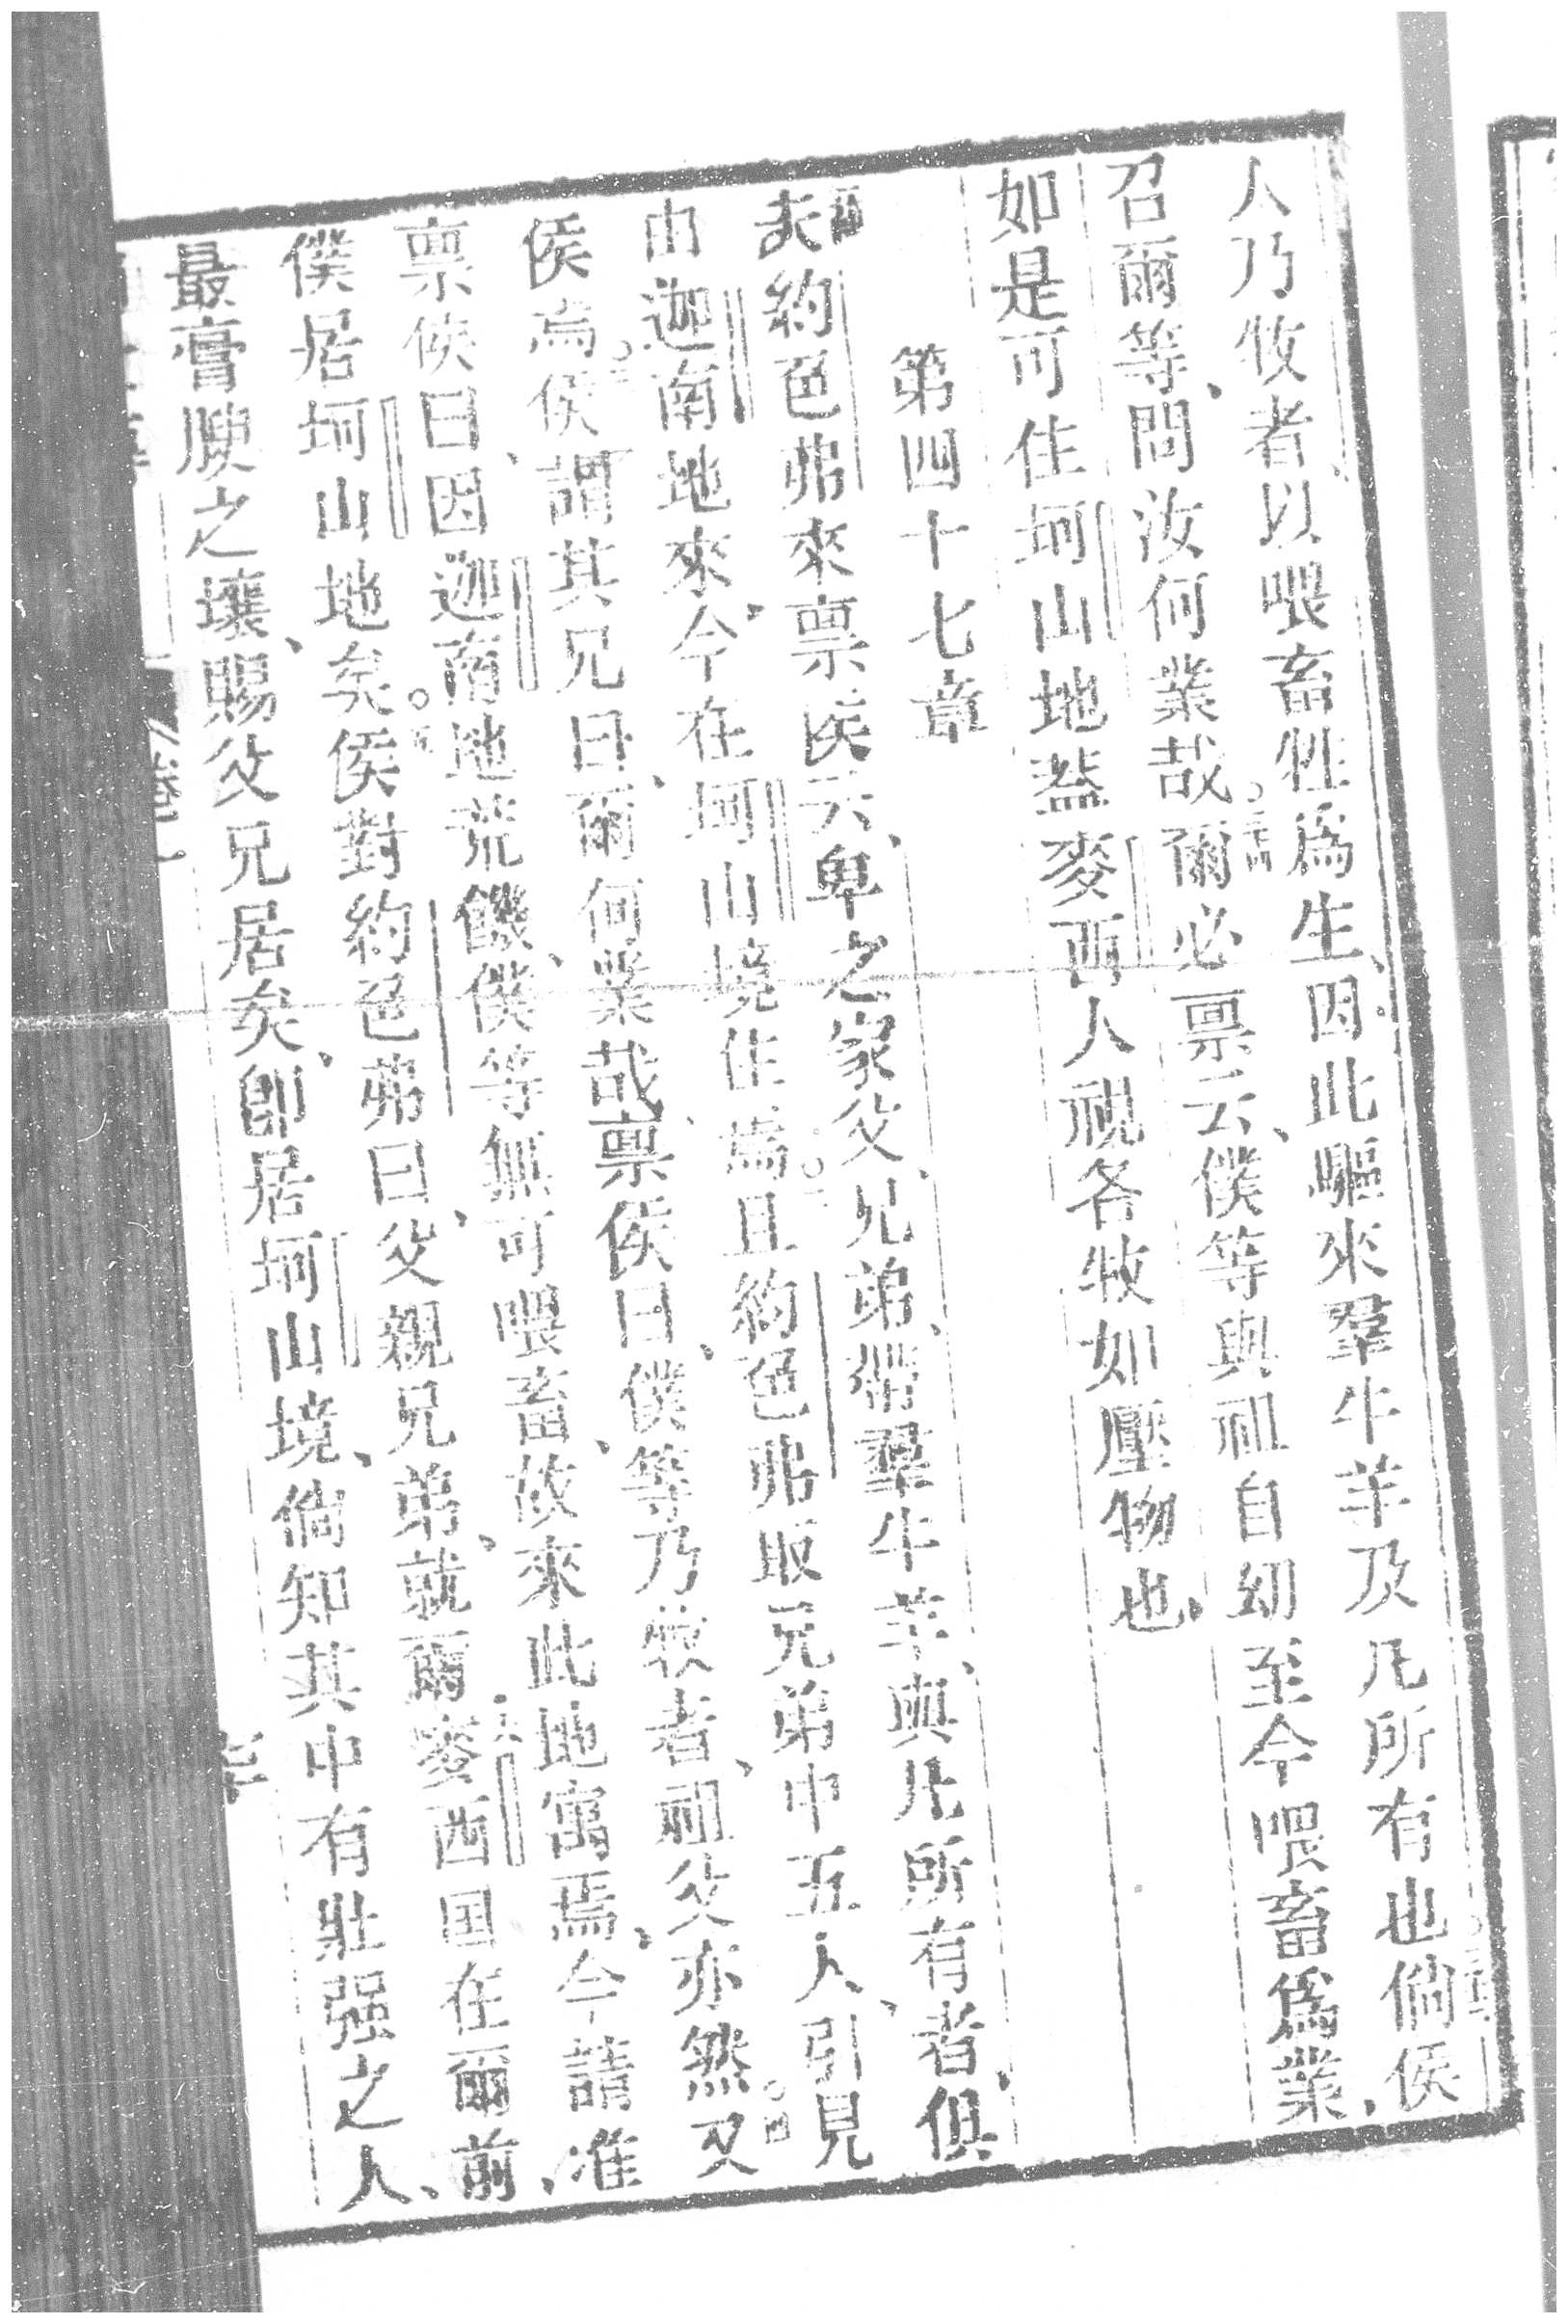 人乃牧者以喂畜牲爲生、因此驅來羣牛羊及凡所有也倘侯
召爾等、問汝何業哉。爾必稟云、僕等與祖自幼至今喂畜爲業、
如是可住坷山地蓋麥西人視各牧如壓物也、
第四十七章
夫約色弗來稟侯云、卑之家父、兄弟、帶羣牛羊、與凡所有者、俱
由迦南地來、今在坷山境住焉。且約色弗取兄弟中五人、引見
侯焉。侯謂其兄曰、爾何業哉、稟侯曰、僕等乃牧者、祖父亦然。又
稟侯曰、因迦南地荒饑、僕等無可喂畜、故來此地寓焉、今請准
僕居坷山地矣。侯對約色弗曰、父親兄弟、就爾麥西国在爾前、
最膏腴之壤、賜父兄居矣、卽居坷山境、倘知其中有壯强之人、